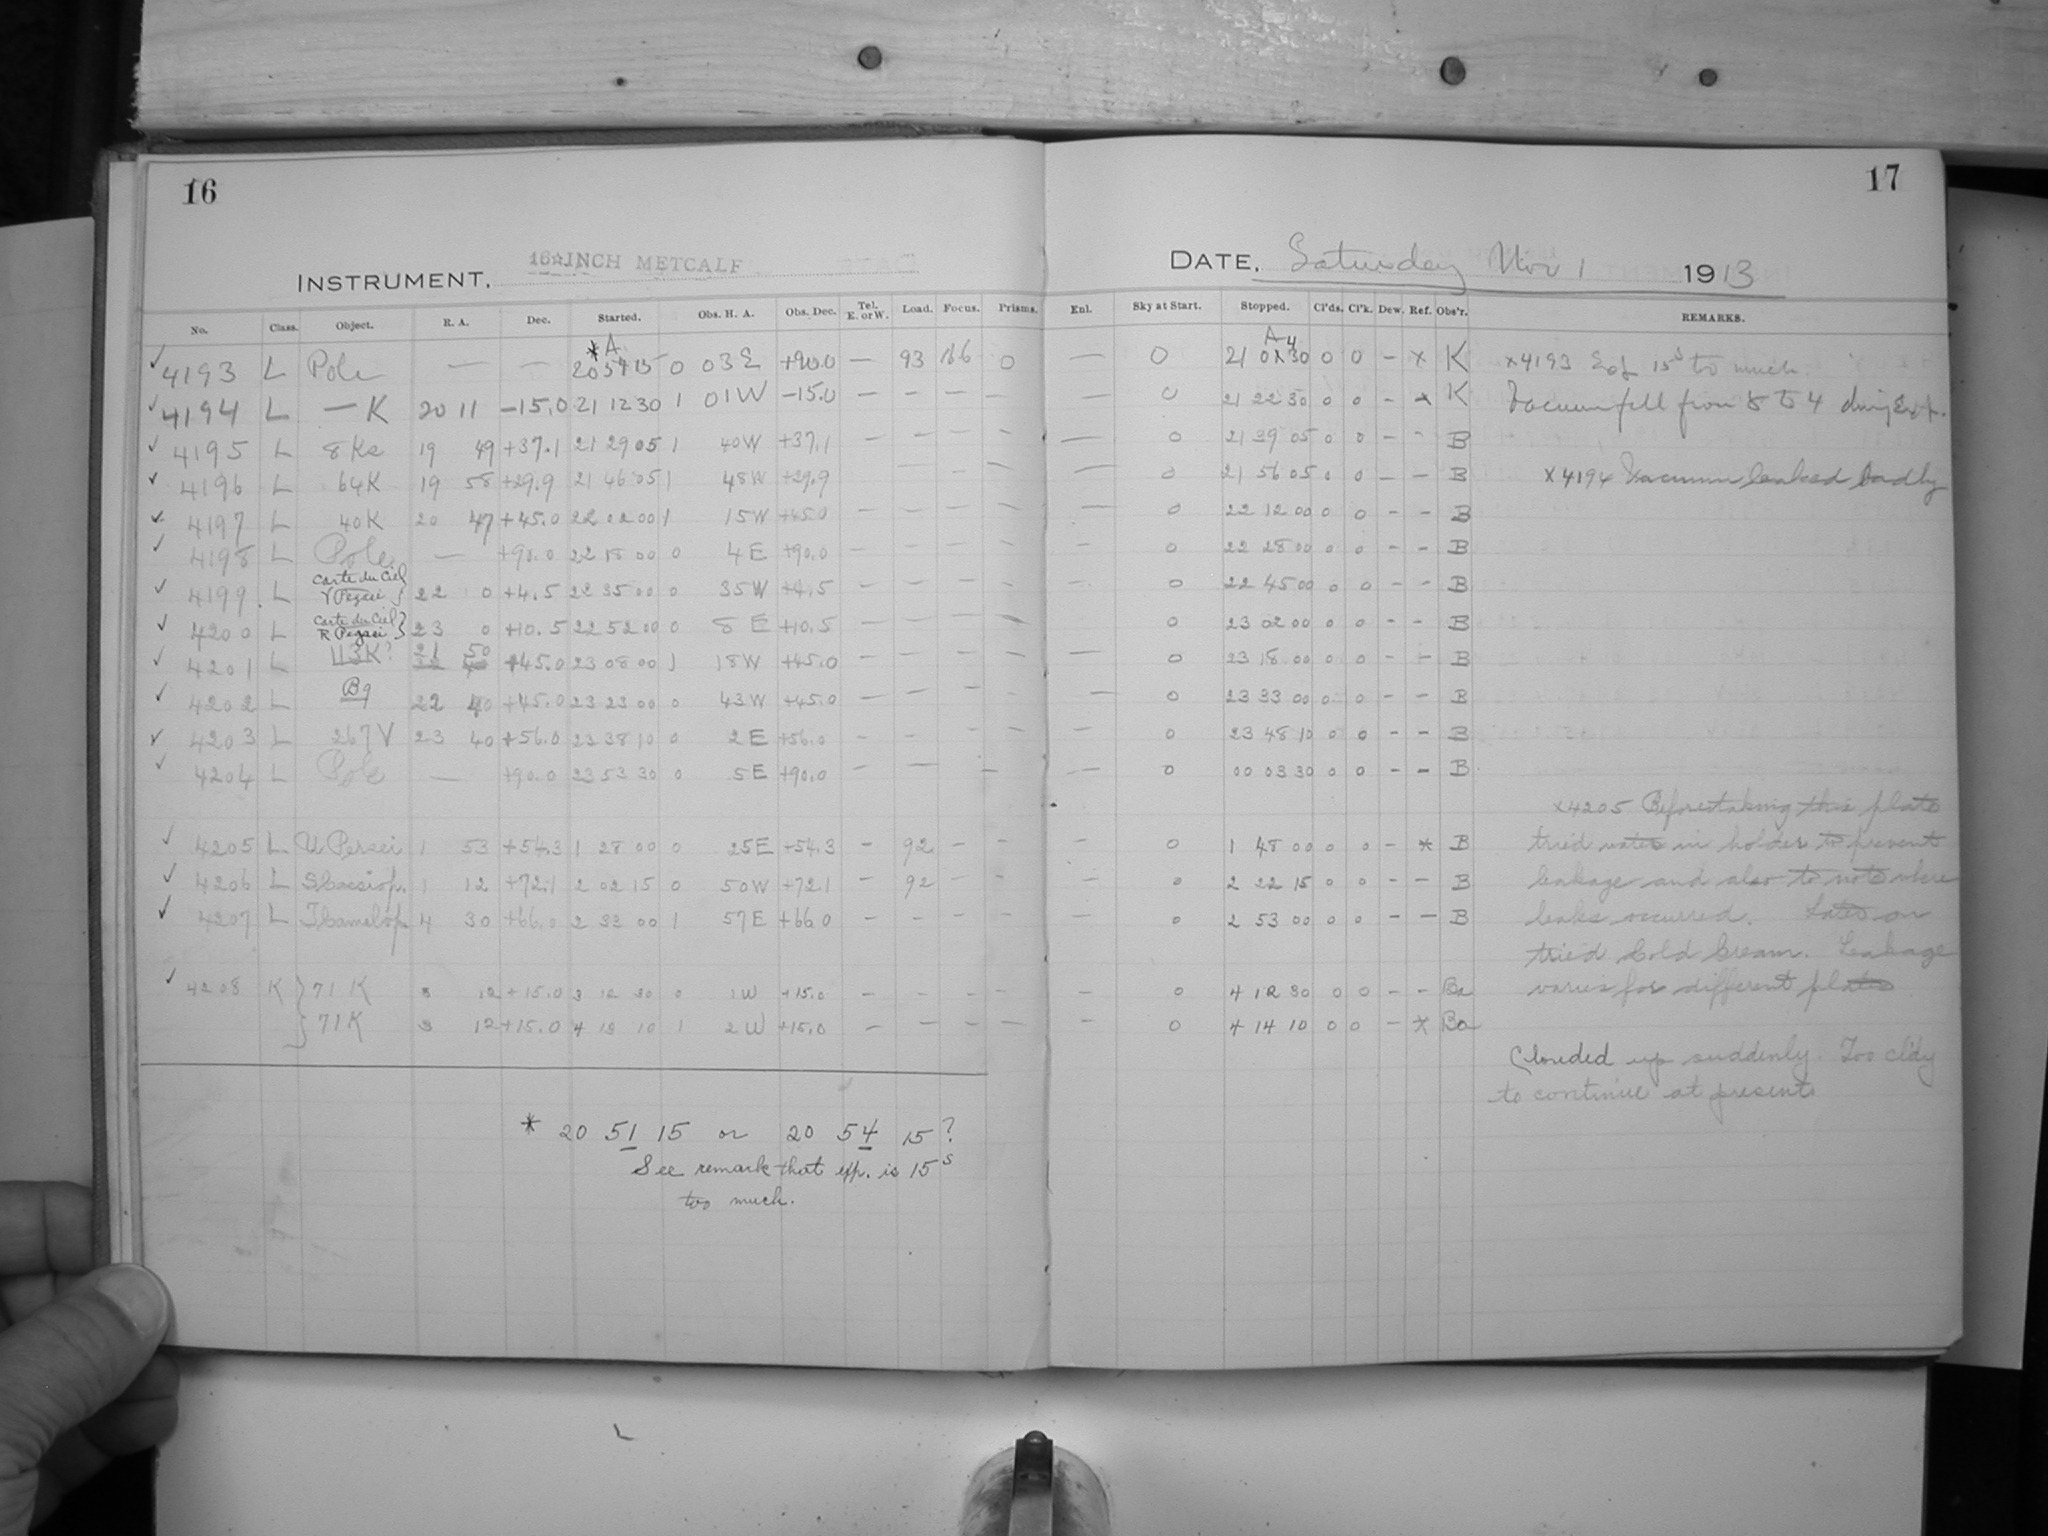 16
17
INSTRUMENT. 16☆INCH METCALF
DATE. Saturday Nov 1 1913
No. Class. Object. R. A. Dec. Started. Obs. H. A. Obs. Dec. Tel. E. or W. Load. Focus. Prisms. Enl. Sky at Start. Stopped. Cl'ds. Cl'k. Dew. Ref. Obs'r. REMARKS.
✓ 4193 L Pole — — 0 03 E +90.0 — 93 O — O 0 0 – x K x4193 15s to much.
✓ 4194 L — K 20 11 -15.0 21 12 30 1 01 W -15.0 — — — — — O 21 22 30 0 0 – x K Vacuum fell from 8 to 4
✓ 4195 L 8 Ks 19 49 +37.1 21 29 05 1 40 W +37.1 — — — — — 0 21 39 05 0 0 – – B
✓ 4196 L 64K 19 58 +29.9 21 46 05 1 48 W +29.9 — — — — 0 21 56 05 0 0 – – B x4194 Vacuum leaked badly
✓ 4197 L 40K 20 47 +45.0 22 02 00 1 15 W +45.0 — — — — — 0 22 12 00 0 0 – – B
✓ 4198 L Pole — +90.0 22 18 00 0 4 E +90.0 — — — — — 0 22 28 00 0 0 – – B
✓ 4199 L Carte du Ciel Pegasi } 22 0 +4.5 22 35 00 0 35 W +4.5 — — — — — 0 22 45 00 0 0 – – B
✓ 4200 L Carte du Ciel R Pegasi } 23 0 +10.5 22 52 00 0 8 E +10.5 — — — — — 0 23 02 00 0 0 – – B
✓ 4201 L 113K? 21 50 +45.0 23 08 00 1 18 W +45.0 — — — — — 0 23 18 00 0 0 – – B
✓ 4202 L B9 22 40 +45.0 23 23 00 0 43 W +45.0 — — — — — 0 23 33 00 0 0 – – B
✓ 4203 L 267 V 23 40 +56.0 23 38 10 0 2 E +56.0 — — — — — 0 23 48 10 0 0 – – B
✓ 4204 L Pole — +90.0 23 53 30 0 5 E +90.0 — — — — 0 00 03 30 0 0 – – B
x4205 Before taking this plate
✓ 4205 L U Persei 1 53 +54.3 1 28 00 0 25 E +54.3 – 92 – – – 0 1 48 00 0 0 – * B tried water in holder to prevent
✓ 4206 L S Cassiop. 1 12 +72.1 2 02 15 0 50 W +72.1 – 92 – – – 0 2 22 15 0 0 – – B leakage and also to note where
✓ 4207 L T Camelop. 4 30 +66.0 2 33 00 1 57 E +66.0 – – – – – 0 2 53 00 0 0 – – B leaks occurred. Later on
tried Cold Cream. Leakage
✓ 4208 K } 71 K 3 12 +15.0 3 12 30 0 1 W +15.0 – – – – – 0 4 12 30 0 0 – – Ba varies for different plates
} 71 K 3 12 +15.0 4 13 10 1 2 W +15.0 – – – – – 0 4 14 10 0 0 – x Ba
Clouded up suddenly. Too cl'dy
to continue at present
* 20 51 15 or 20 54 15?
See remark that exp. is 15s
too much.